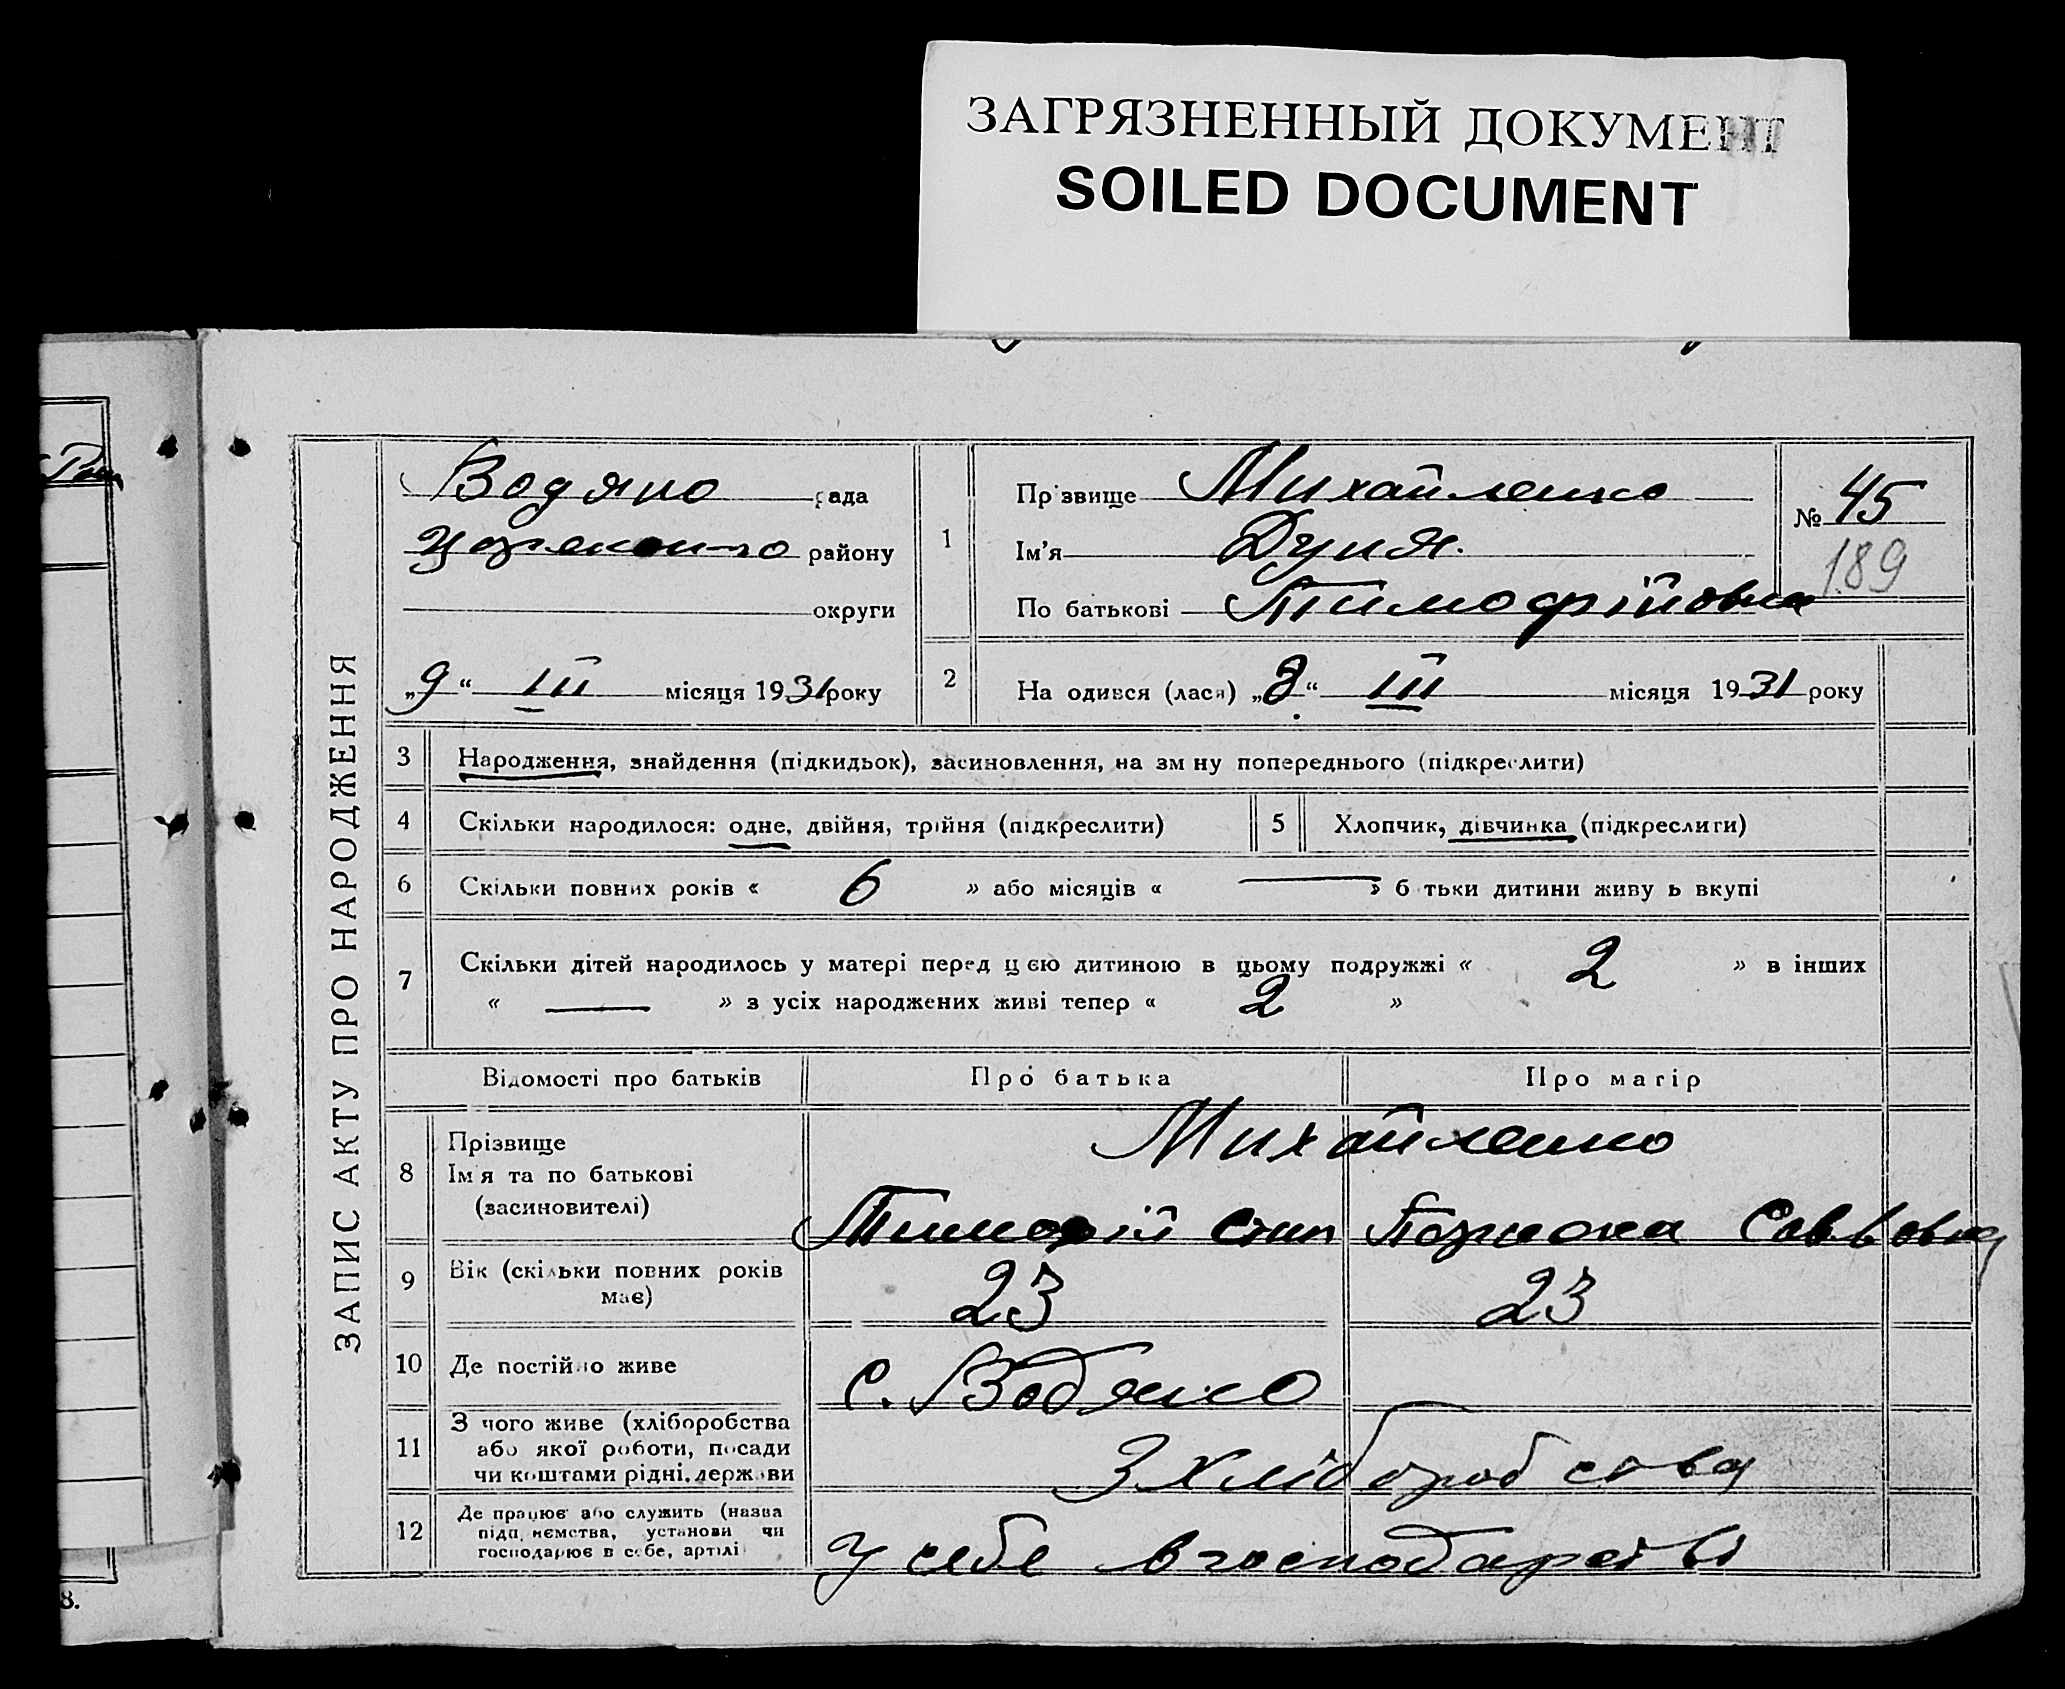 ЗАГРЯЗНЕННЫЙ ДОКУМЕНТ
SOILED DOCUMENT
ЗАПИС АКТУ ПРО НАРОДЖЕННЯ
Водяно рада
району
округи
„9“ III місяця 1931 року
1
Прізвище Михайленко
Ім’я Дуня.
По батькові Тимофійовна
№ 45
189
2 На одився (лася) „8“ III місяця 1931 року
3 Народження, знайдення (підкидьок), засиновлення, на зм ну попереднього (підкреслити)
4 Скільки народилося: одне, двійня, трійня (підкреслити) 5 Хлопчик, дівчинка (підкреслити)
6 Скільки повних років « 6 » або місяців « — » б тьки дитини живу ь вкупі
7 Скільки дітей народилось у матері перед ц єю дитиною в цьому подружжі « 2 » в інших
« — » з усіх народжених живі тепер « 2 »
Відомості про батьків Про батька Про матір
8 Прізвище Михайленко
Ім я та по батькові
(засиновителі) Тимофій Саввовна
9 Вік (скільки повних років
має) 23 23
10 Де постійно живе с. Водяно
11 З чого живе (хліборобства
або якої роботи, посади
чи коштами рідні, держави З хліборобства
12 Де працює або служить (назва
підп. немства, установи чи
господарює в себе, артілі у себе в господарстві
8.